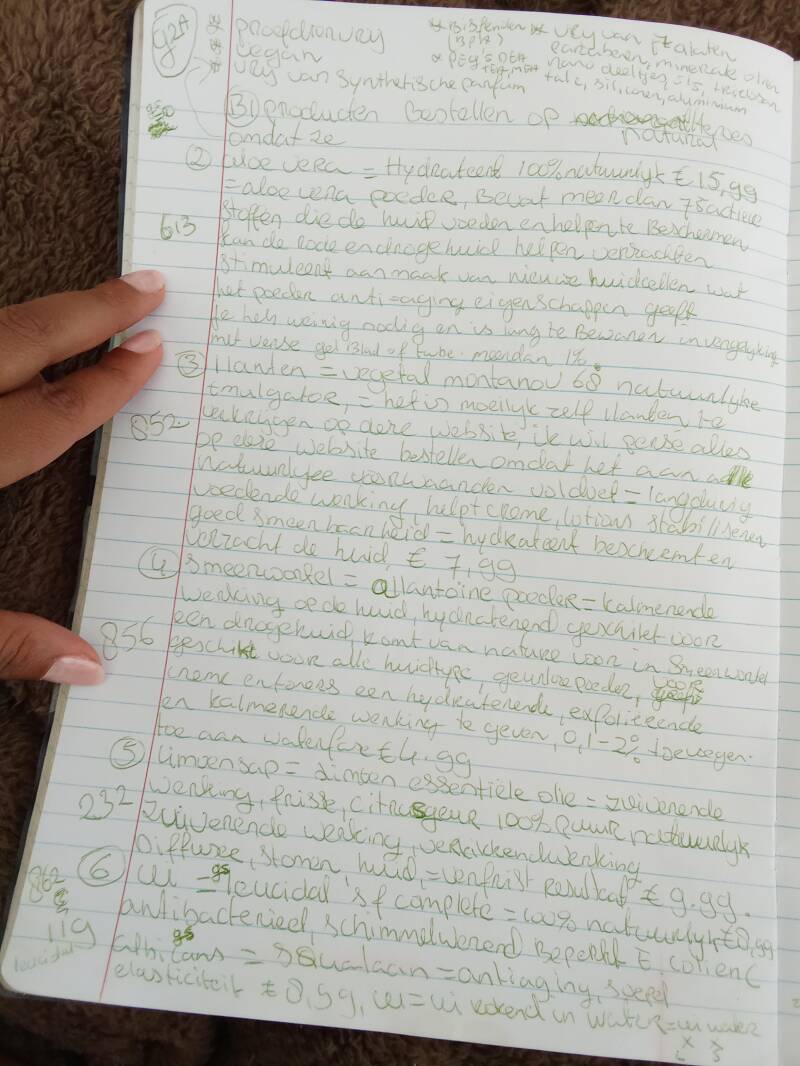 92A * proefdiervrij * Bisfenolen * vrij van ftalaten
* vegan (BPA) parabenen, minerale olien
* vrij van synthetische parfum * PEG's DEA nano deeltjes SLS, triclosan
TEA, MEA talc, siliconen, aluminium
B1 producten bestellen op
omdat ze natural
② aloe vera = Hydrateert 100% natuurlijk € 15,99
= aloe vera poeder, Bevat meer dan 75 actieve
stoffen die de huid voeden en helpen te Beschermen
613 kan de rode en droge huid helpen verzachten
stimuleert aanmaak van nieuwe huidcellen wat
het poeder anti-aging eigenschappen geeft
je heb weinig nodig en is lang te Bewaren in vergelijking
met verse gel Blad of tube. meer dan 1%
③ llanten = vegetal montanov 68 natuurlyke
Emulgator, = het is moeilyk zelf llanten te
852 verkrijgen op deze website, ik wil persé alles
op deze website bestellen omdat het aan alle
natuurlyee voorwaarden voldoet = langdurig
voedende werking, helpt creme, lotions stabiliseren
goed smeerbaarheid = hydrateert beschermt en
verzacht de huid, € 7,99
④ smeerwortel = allantoïne poeder = kalmerende
werking op de huid, hydraterend geschikt voor
een droge huid, komt van nature voor in Smeerwortel
856 geschikt voor alle huidtype, geurloze poeder, voor
creme en toners een hydraterende, exfolieerende
en kalmerende werking te geven, 0,1-2% toevoegen.
toe aan waterfase € 4.99
⑤ limoensap = Limoen essentiële olie = zuiverende
232 werking, frisse, citrusgeur 100% puur natuurlyk
zuiverende werking, verkwikkend werking
Diffuser, stomen, huid, = verfrist resultaat € 9.99.
862 ⑥ ui = leucidal sf complete = 100% natuurlyk € 8,99
antibacterieel, schimmelwerend Beperkt E. coli en C
119
leucidal albicans = squalaan = antiaging, soepel
elasticiteit € 8,59, ui = ui kokend in water = ui water